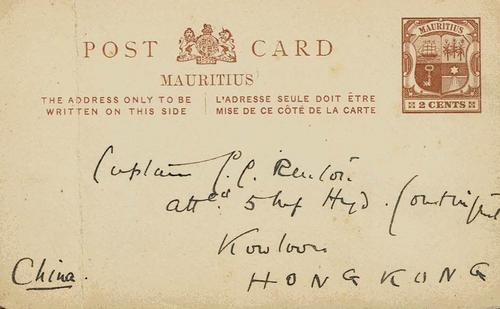 POST CARD
MAURITIUS
THE ADDRESS ONLY TO BE WRITTEN ON THIS SIDE
L'ADRESSE SEULE DOIT ÊTRE MISE DE CE CÔTÉ DE LA CARTE
MAURITIUS
2 CENTS
Captain
attd 5 Inf Hyd. Contingent
Kowloon
HONG KONG
China.